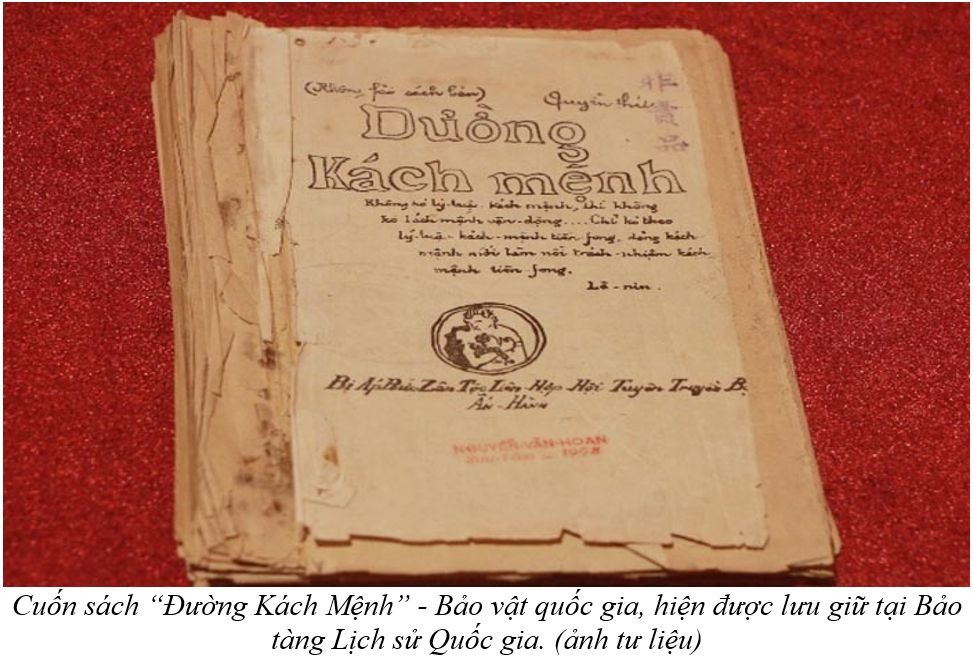 (Không fải sách bán)
Quyển thứ
Đường
Kách mệnh
Không có lý-luận kách mệnh, thì không
kó kách mệnh vận-động.... Chỉ kó theo
lý-luận kách-mệnh tiền-fong, đảng kách
mệnh mới làm nổi trách-nhiệm kách
mệnh tiền-fong.
Lê-nin.
Bị Áp Bức Zân Tộc Liên-Hợp-Hội Tuyên Truyền Bộ
Ấn-Hành
NGUYỄN-VĂN-HOAN
Cuốn sách “Đường Kách Mệnh” - Bảo vật quốc gia, hiện được lưu giữ tại Bảo
tàng Lịch sử Quốc gia. (ảnh tư liệu)